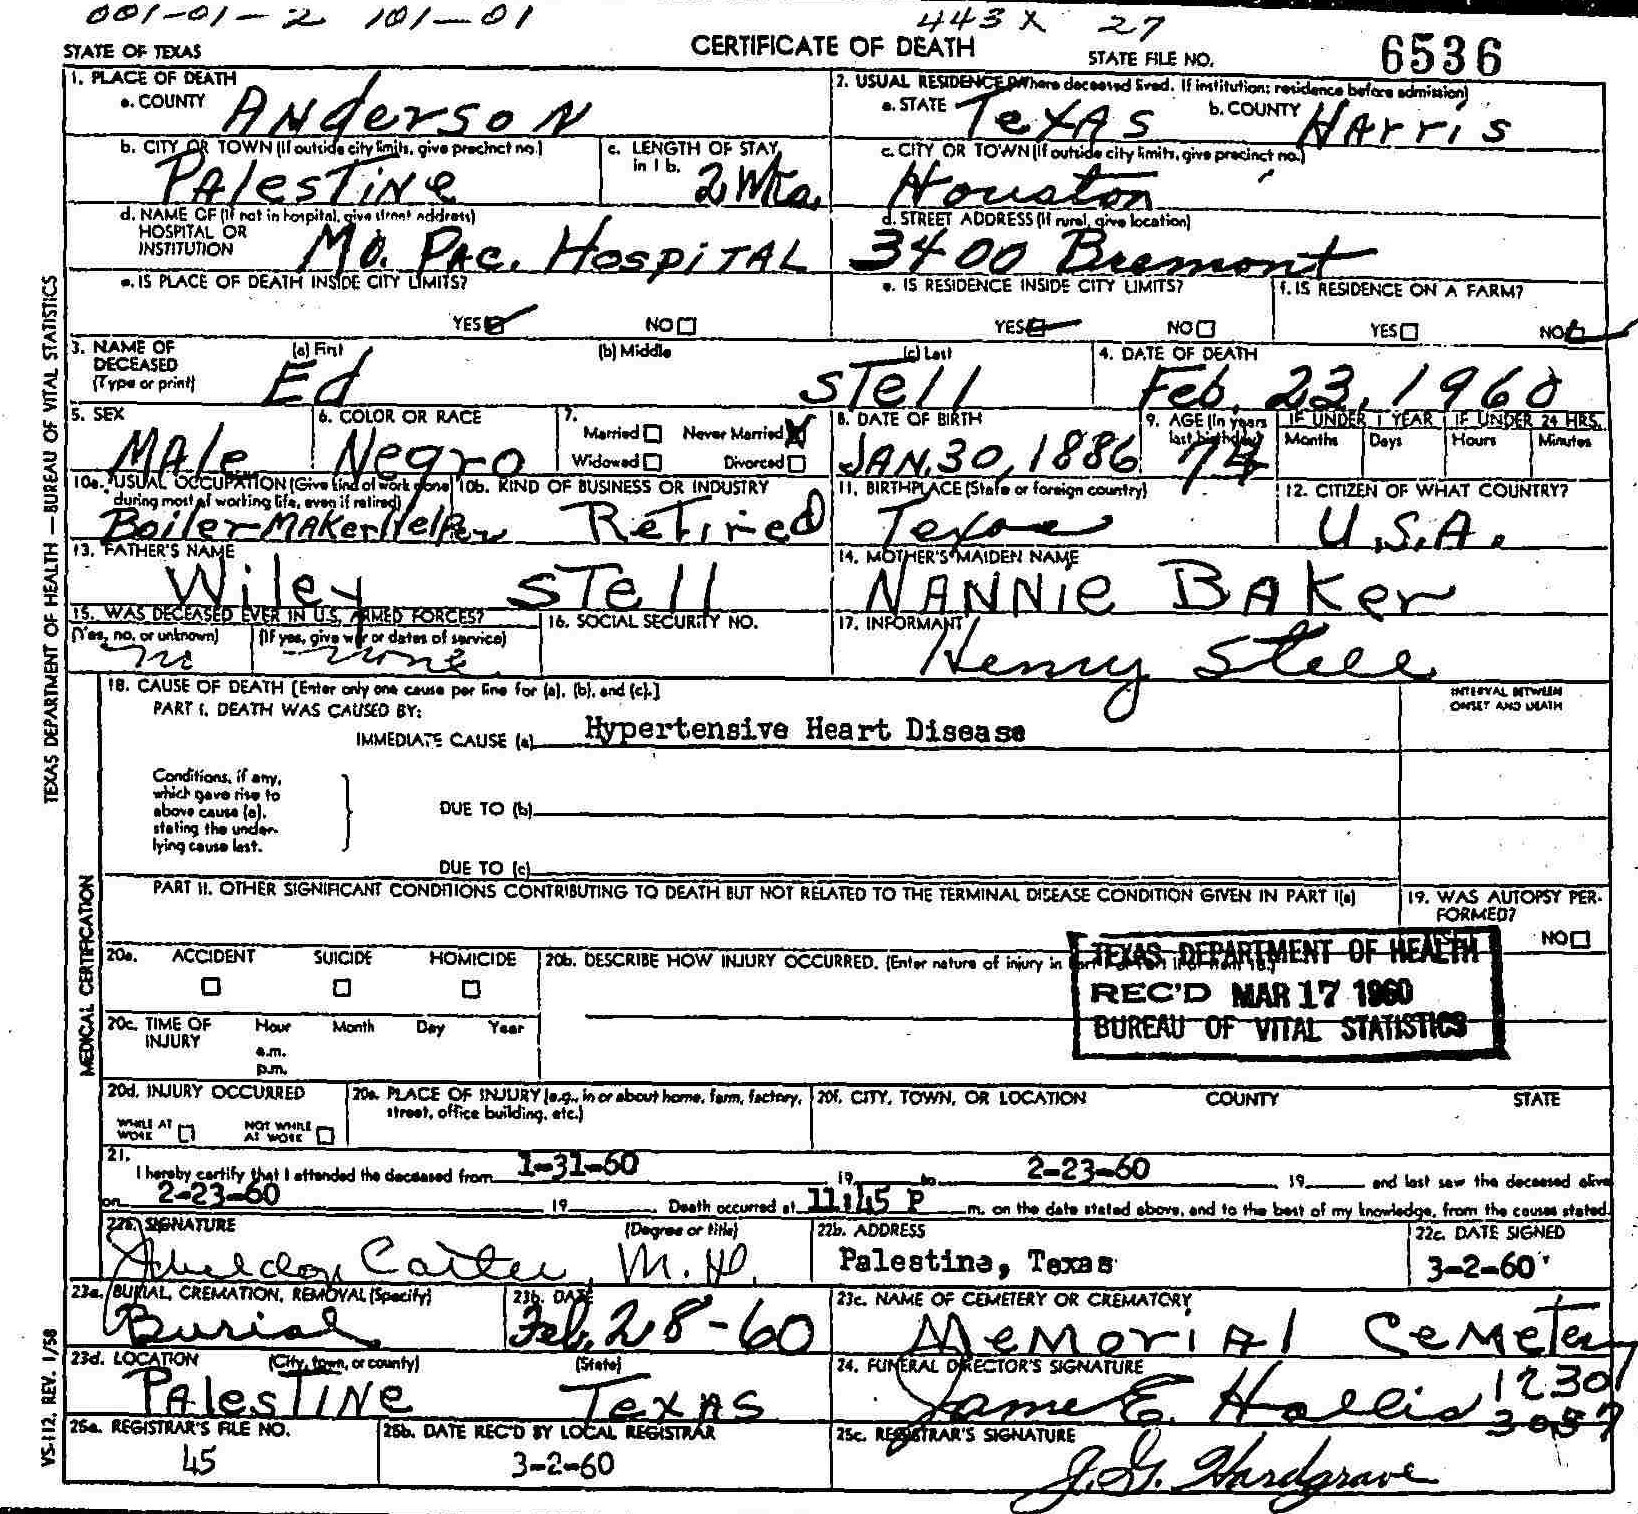 001-01-2 101-01 443 X 27
STATE OF TEXAS CERTIFICATE OF DEATH STATE FILE NO. 6536
1. PLACE OF DEATH
a. COUNTY Anderson
2. USUAL RESIDENCE (Where deceased lived. If institution: residence before admission)
a. STATE Texas b. COUNTY Harris
b. CITY OR TOWN (If outside city limits, give precinct no.) Palestine
c. LENGTH OF STAY in 1 b. 2 Wks.
c. CITY OR TOWN (If outside city limits, give precinct no.) Houston
d. NAME OF (If not in hospital, give street address) HOSPITAL OR INSTITUTION Mo. Pac. Hospital
d. STREET ADDRESS (If rural, give location) 3400 Bremont
e. IS PLACE OF DEATH INSIDE CITY LIMITS?
YES NO
e. IS RESIDENCE INSIDE CITY LIMITS?
YES NO
f. IS RESIDENCE ON A FARM?
YES NO
3. NAME OF DECEASED (Type or print) (a) First (b) Middle (c) Last
Ed Stell
4. DATE OF DEATH
Feb. 23, 1960
5. SEX Male
6. COLOR OR RACE Negro
7. Married Never Married
Widowed Divorced
8. DATE OF BIRTH JAN. 30, 1886
9. AGE (In years last birthday) 74
IF UNDER 1 YEAR Months Days
IF UNDER 24 HRS. Hours Minutes
10a. USUAL OCCUPATION (Give kind of work done during most of working life, even if retired) Boiler-Maker Helper
10b. KIND OF BUSINESS OR INDUSTRY Retired
11. BIRTHPLACE (State or foreign country) Texas
12. CITIZEN OF WHAT COUNTRY? U.S.A.
13. FATHER'S NAME Wiley Stell
14. MOTHER'S MAIDEN NAME NANNIE BAKER
15. WAS DECEASED EVER IN U.S. ARMED FORCES?
(Yes, no, or unknown) no (If yes, give war or dates of service) none
16. SOCIAL SECURITY NO.
17. INFORMANT Henry Stell
18. CAUSE OF DEATH [Enter only one cause per line for (a), (b), and (c).]
INTERVAL BETWEEN ONSET AND DEATH
PART I. DEATH WAS CAUSED BY:
IMMEDIATE CAUSE (a) Hypertensive Heart Disease
Conditions, if any, which gave rise to above cause (a), stating the underlying cause last.
DUE TO (b)
DUE TO (c)
PART II. OTHER SIGNIFICANT CONDITIONS CONTRIBUTING TO DEATH BUT NOT RELATED TO THE TERMINAL DISEASE CONDITION GIVEN IN PART I(a)
19. WAS AUTOPSY PERFORMED?
NO
20a. ACCIDENT SUICIDE HOMICIDE
20b. DESCRIBE HOW INJURY OCCURRED. (Enter nature of injury in
TEXAS DEPARTMENT OF HEALTH
REC'D MAR 17 1960
BUREAU OF VITAL STATISTICS
20c. TIME OF INJURY Hour Month Day Year
a.m.
p.m.
20d. INJURY OCCURRED
WHILE AT WORK NOT WHILE AT WORK
20e. PLACE OF INJURY (e.g., in or about home, farm, factory, street, office building, etc.)
20f. CITY, TOWN, OR LOCATION COUNTY STATE
21.
I hereby certify that I attended the deceased from 1-31-60 19 to 2-23-60 19 and last saw the deceased alive
on 2-23-60 19 Death occurred at 11:45 P m. on the date stated above, and to the best of my knowledge, from the causes stated.
22a. SIGNATURE (Degree or title) Sheldon Carter, M.D.
22b. ADDRESS Palestine, Texas
22c. DATE SIGNED 3-2-60
23a. BURIAL, CREMATION, REMOVAL (Specify) Burial
23b. DATE Feb. 28-60
23c. NAME OF CEMETERY OR CREMATORY Memorial Cemetery
23d. LOCATION (City, town, or county) (State)
Palestine Texas
24. FUNERAL DIRECTOR'S SIGNATURE James E. Hollis 12301
3057
25a. REGISTRAR'S FILE NO. 45
25b. DATE REC'D BY LOCAL REGISTRAR 3-2-60
25c. REGISTRAR'S SIGNATURE J. G. Hardgrave
TEXAS DEPARTMENT OF HEALTH — BUREAU OF VITAL STATISTICS
MEDICAL CERTIFICATION
VS-112. REV. 1/58